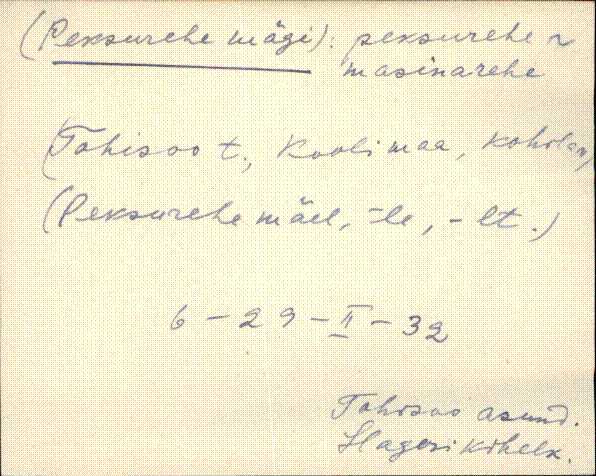 (Peksurehe mägi): peksurehe ~
masinarehe
(Tohisoo t., Koolimaa, Kohilas,
(Peksurehe mäel, -le, -lt.)
6 - 29 - II - 32
Tohisoo asund.
Hageri kihelk.